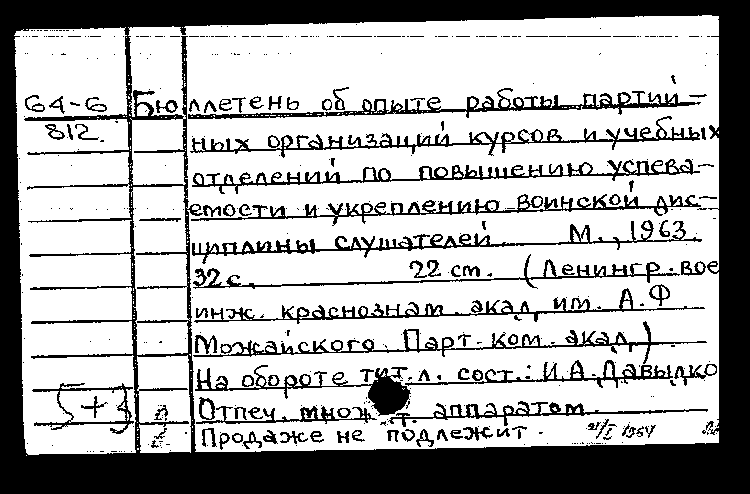 64-6 Бюллетень об опыте работы партий-
812. ных организаций курсов и учебных
отделений по повышению успева-
емости и укреплению воинской дис-
циплины слушателей М., 1963.
32 с. 22 см. (Ленингр. вое
инж. краснознам. акад. им. А.Ф.
Можайского. Парт. ком. акад.)
На обороте тит. л. сост.: И.А. Давыдко
5+3 Отпеч. множ. т. аппаратом.
Продаже не подлежит. 21/I 1964